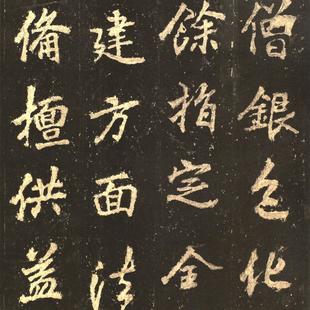 僧銀色化
餘指定全
建方面法
備檀供益